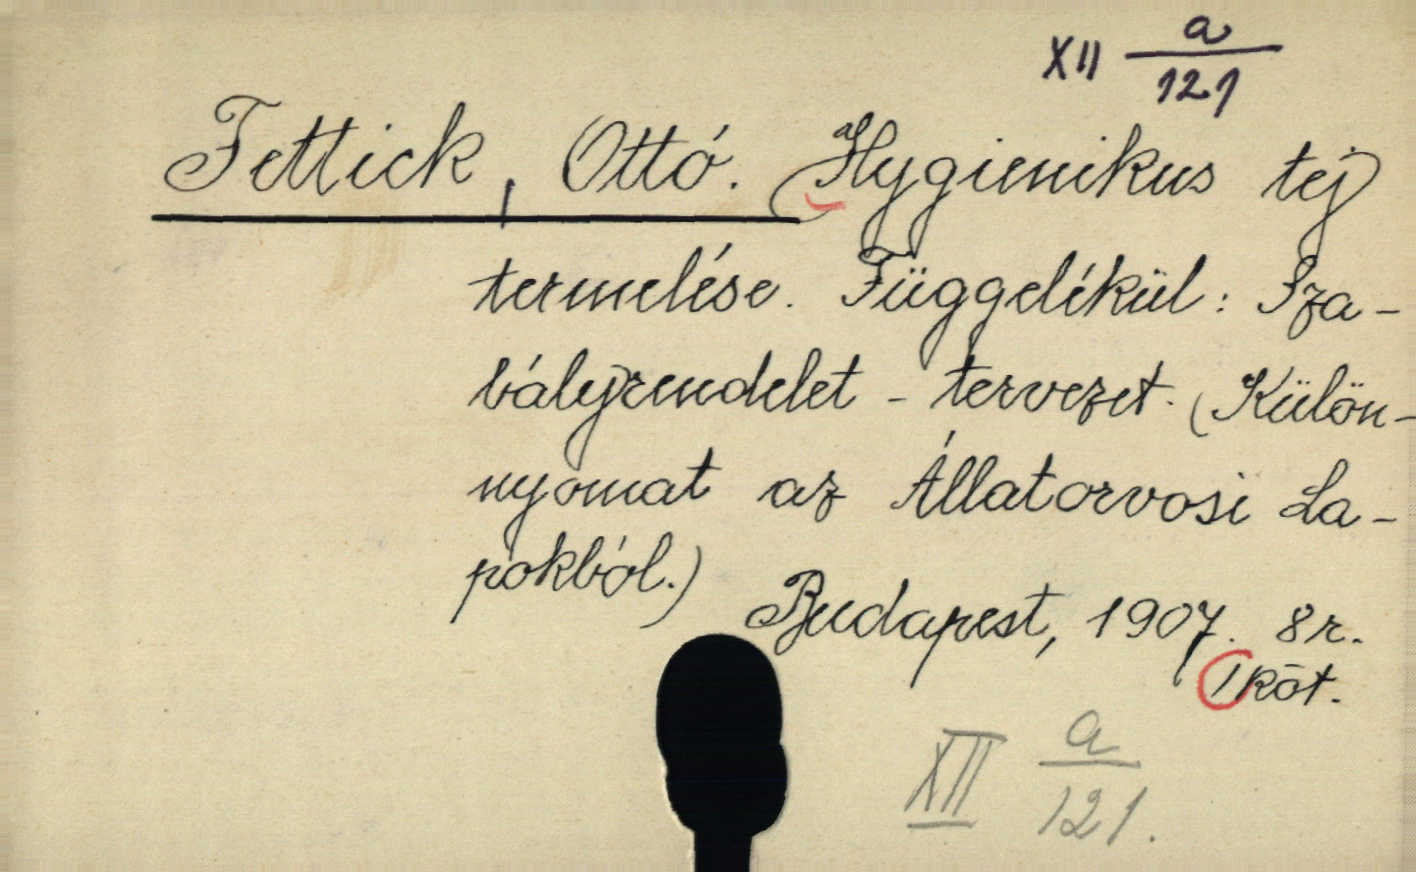 XII a/121
Fettick, Ottó. Hygienikus tej
termelése. Függelékül: Sza-
bályrendelet - tervezet. (Külön-
nyomat az Állatorvosi La-
pokból.)
Budapest, 1907. 8r.
1 köt.
XII a/121.